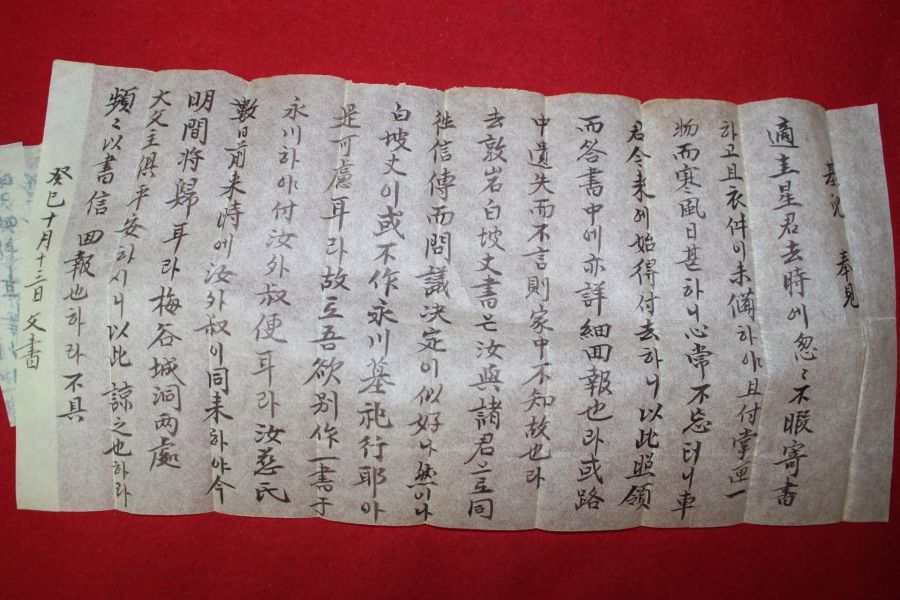 基兒 奉見
適圭星君去時에忽〻不暇寄書
하고且衣件이未備하야且付掌匣一
物而寒風日甚하니心常不忘터니車
君今来에始得付去하니以此照領
而答書中에亦詳細回報也라或路
中遺失而不言則家中不知故也라
去敦岩白坡丈書는汝與諸君으로同
徃信傳而問議决定이似好나然이나
白坡丈이或不作永川墓祀行耶아
是可慮耳라故로吾欲別作一書于
永川하야付汝外叔便耳라汝慈氏
數日前来時에汝外叔이同来하야今
明間將歸耳라梅谷城洞兩處
大父主俱平安하시니以此諒之也하라
頻〻以書信回報也하라不具
癸巳十月十三日父書